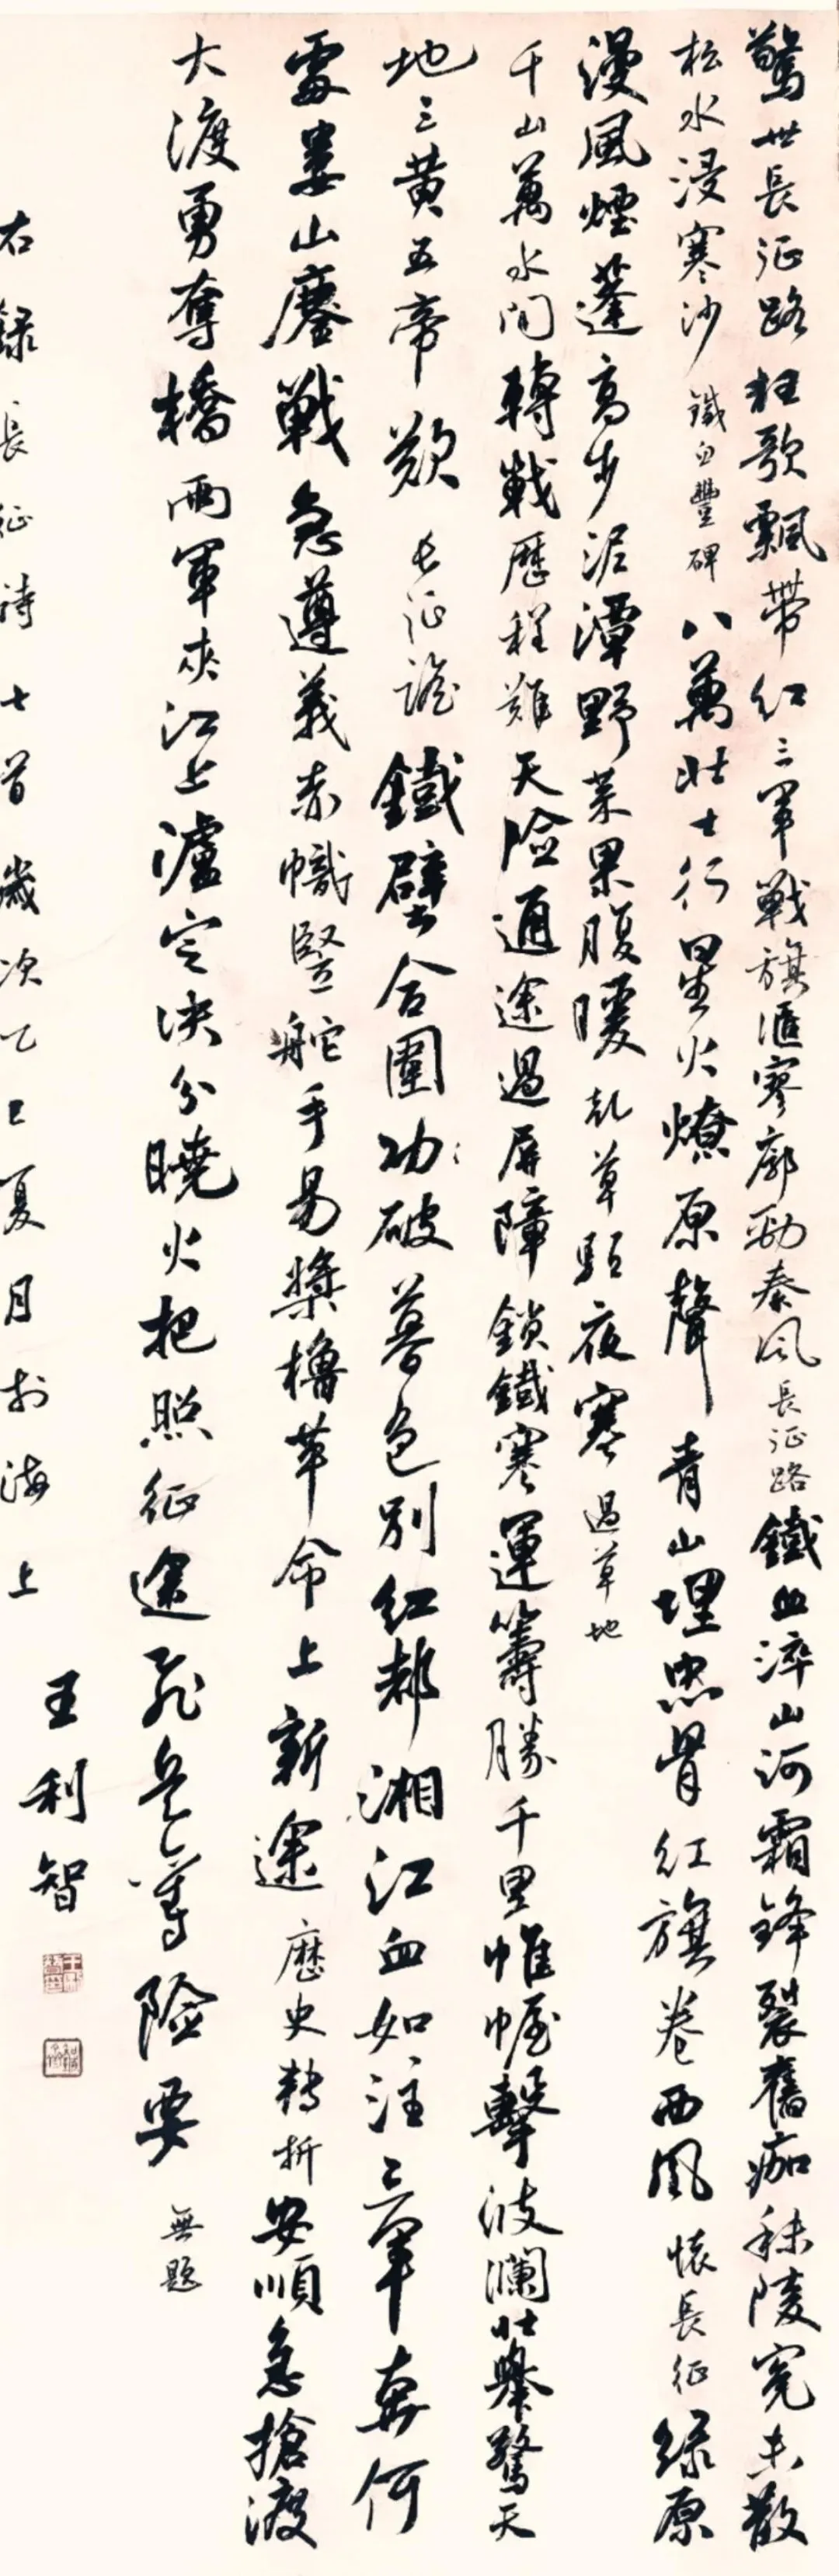 驚世長征路狂歌飄帶紅三軍戰旗漚寥廓勁秦風長征路鐵血淬山河霜鋒裂舊痂秣陵冤未散
松水浸寒沙鐵血豐碑八萬壯士行星火燎原聲青山埋忠骨紅旗卷西風懷長征綠原
漫風煙蓬高步泥潭野菜果腹暖乾草駐夜寒過草地
千山萬水間轉戰歷程難天險通途過屏障鎖鐵寒運籌勝千里帷幄擊波瀾壯舉驚天
地三黃五帝歎長征謠鐵壁合圍功破暮色別紅都湘江血如注三軍奈何
霧婁山鏖戰急遵義赤幟豎舵手易槳櫓革命上新途歷史轉折安順急搶渡
大渡勇奪橋兩軍夾江上瀘定決分曉火把照征途飛兵奪險要無題
右錄長征詩七首歲次乙巳夏月於海上
王利智